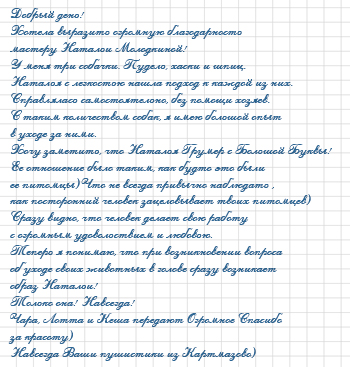 Добрый день!
Хотела выразить огромную благодарность
мастеру Наталии Молодкиной!
У меня три собачки. Пудель, хаски и шпиц.
Наталия с легкостью нашла подход к каждой из них.
Справлялась самостоятельно, без помощи хозяев.
С таким количеством собак, я имею большой опыт
в уходе за ними.
Хочу заметить, что Наталья Грумер с Большой Буквы!
Ее отношение было таким, как будто это были
ее питомцы) Что не всегда привычно наблюдать ,
как посторонний человек зацеловывает твоих питомцев)
Сразу видно, что человек делает свою работу
с огромным удовольствием и любовью.
Теперь я понимаю, что при возникновении вопроса
об уходе своих животных в голове сразу возникает
образ Наталии!
Только она! Навсегда!
Чара, Лотта и Кеша передают Огромное Спасибо
за красоту)
Навсегда Ваши пушистики из Картмазово)